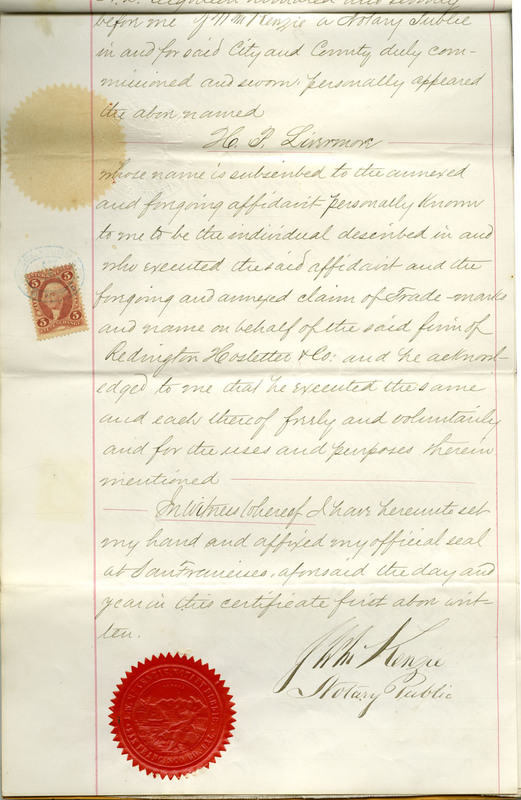 Eighteen hundred and seventy
before me J W McKenzie a Notary Public
in and for said City and County duly com-
missioned and sworn: personally appeared
the above named
H. P. Livermore
whose name is subscribed to the annexed
and forgoing affidavit personally known
to me to be the individual described in and
who executed the said affidavit and the
forgoing and annexed claim of Trade-marks
and name on behalf of the said firm of
Redington Hostetter & Co: and he acknowl-
edged to me that he executed the same
and each thereof freely and voluntarily
and for the uses and purposes therein
mentioned
In Witness Whereof I have hereunto set
my hand and affixed my official seal
at San Francisco, aforesaid the day and
year in this certificate first above writ-
ten.
J W McKenzie
Notary Public
5 5
5 5